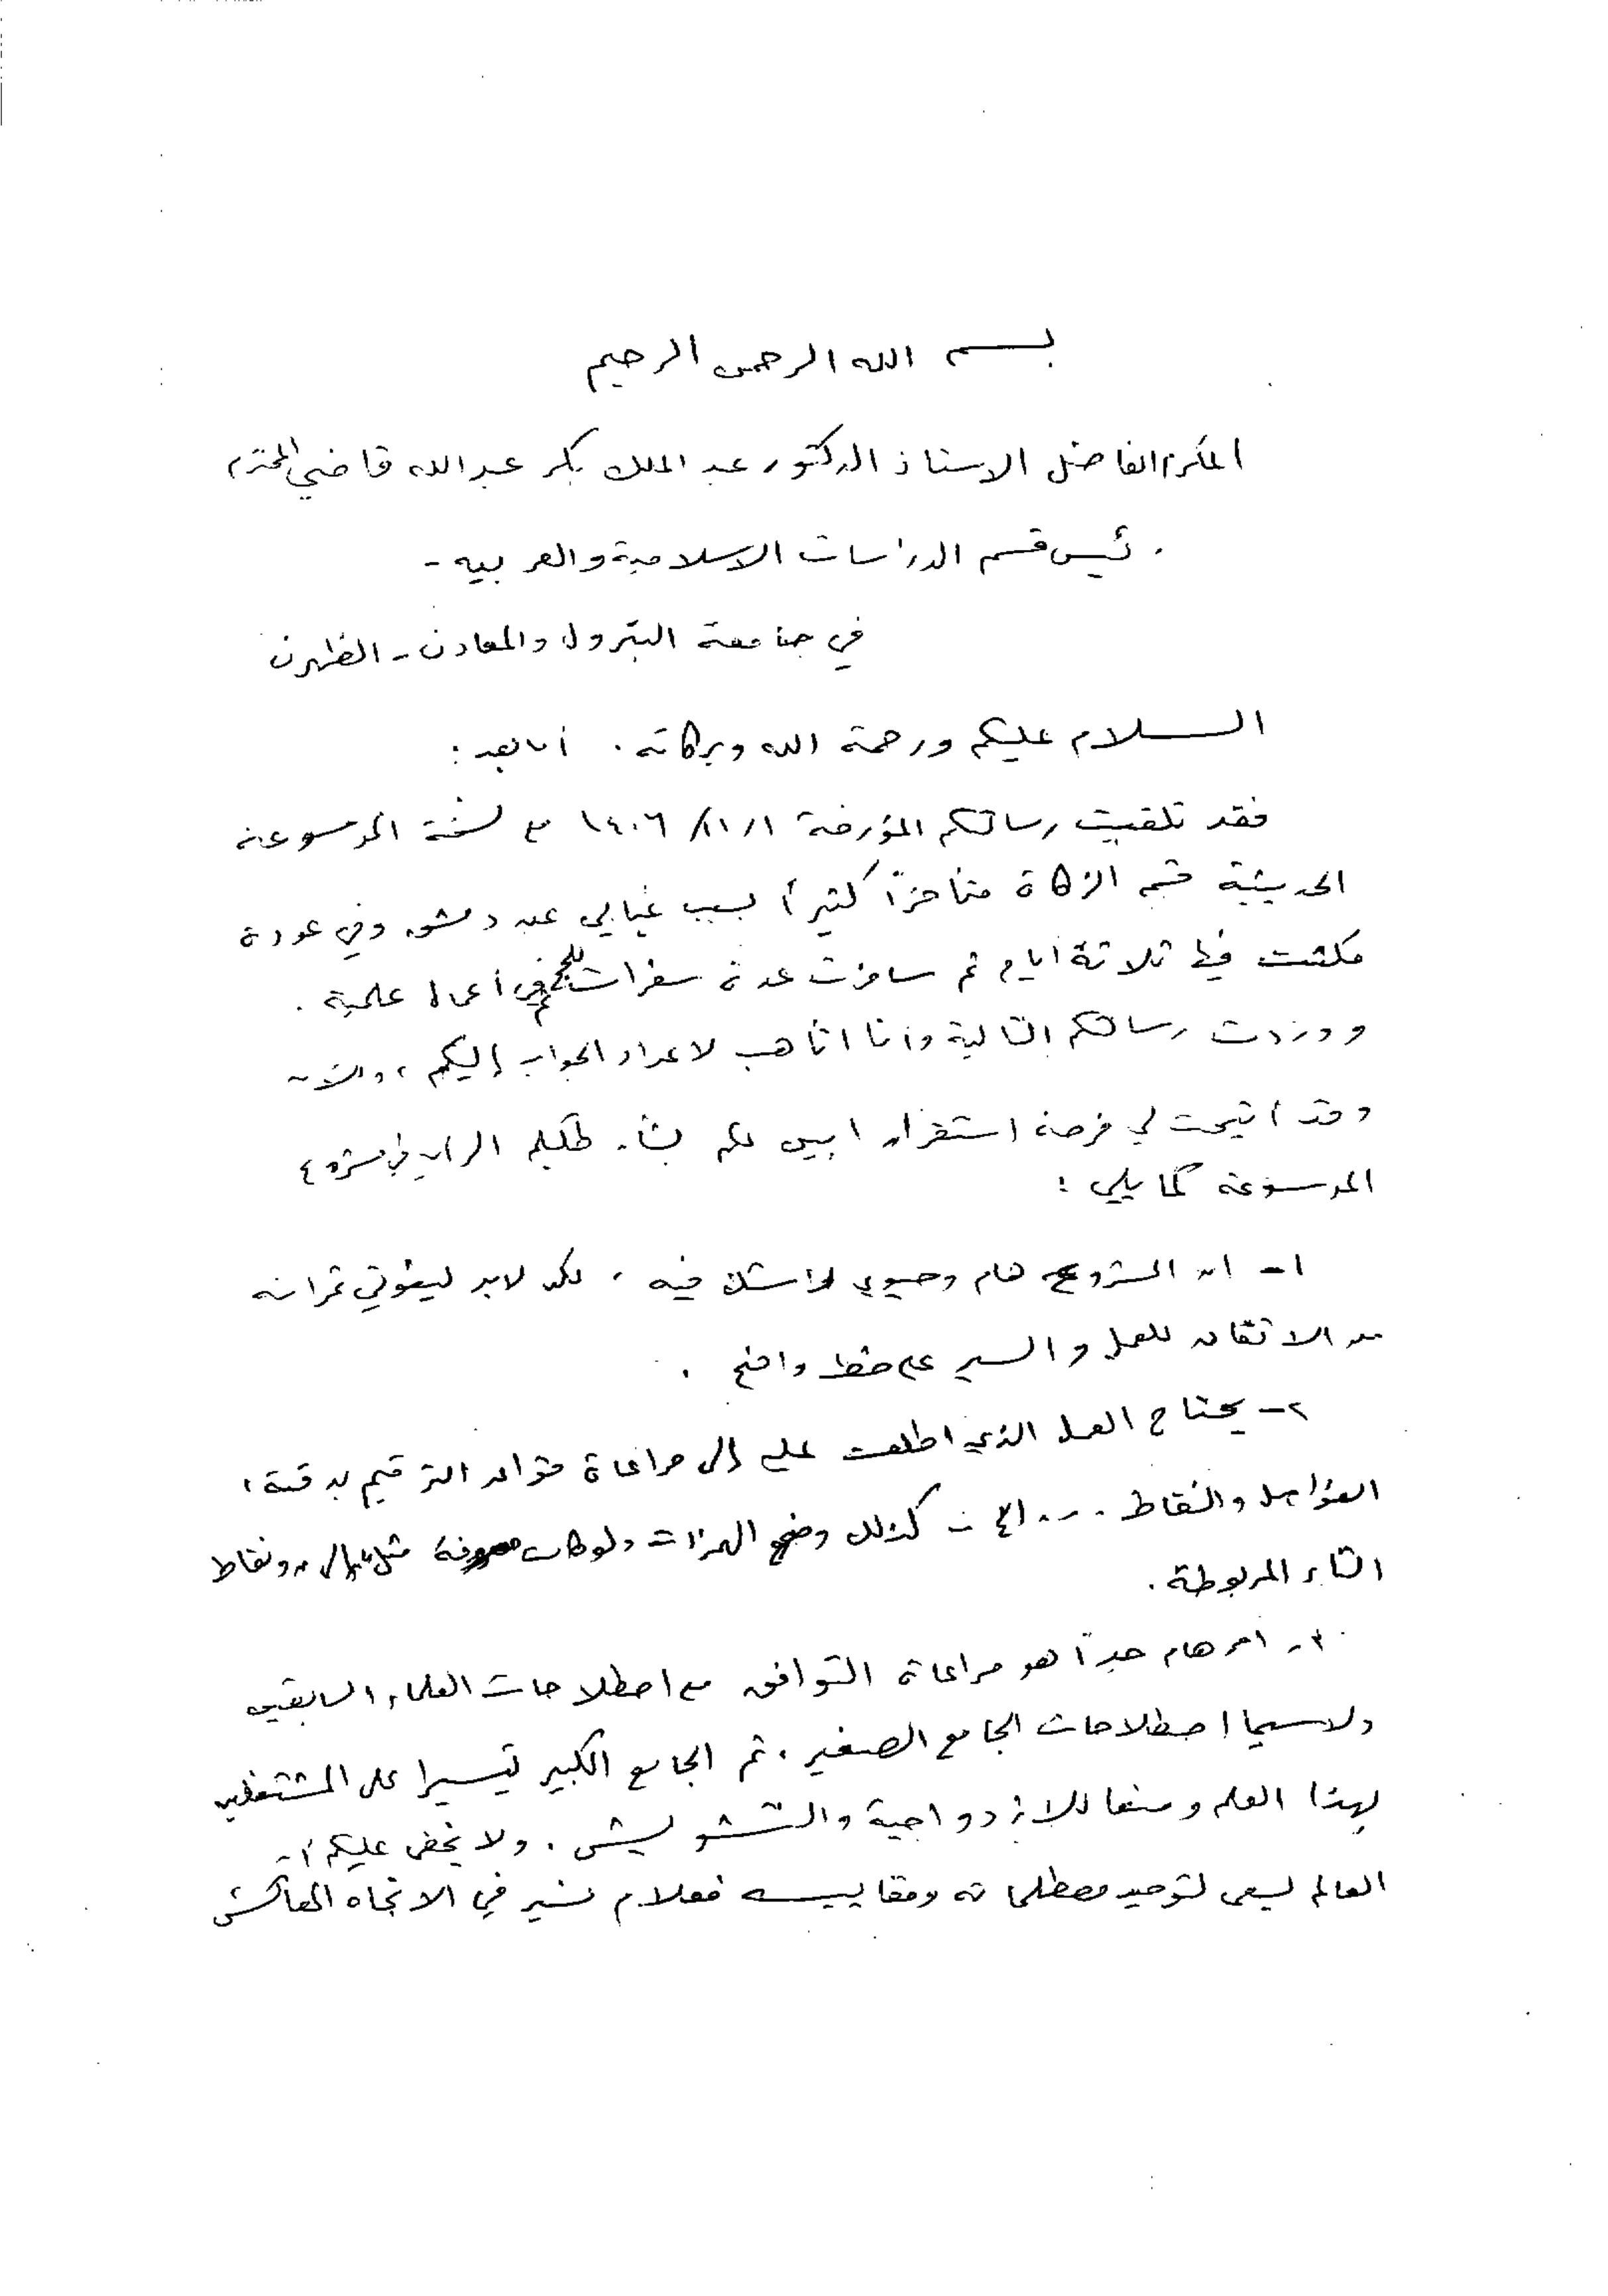 بسم الله الرحمن الرحيم
المكرم الفاضل الاستاذ الدكتور عبد الملك بكر عبدالله قاضي المحترم
رئيس قسم الدراسات الاسلامية والعربيه -
في جامعة البترول والمعادن - الظهرن
السلام عليكم ورحمة الله وبركاته . أما بعد :
فقد تلقيت رسالتكم المؤرخة ١٤٠٦/١١/١ مع نسخة الموسوعة
الحديثية قسم الزكاة متأخراً كثيراً بسبب غيابي عن دمشق وفي عودة
مكثت فيها ثلاثة أيام ثم سافرت عدة سفرات في أعمال علمية .
ووردت رسالتكم التالية وأنا اتأهب لاعداد الجواب إليكم ، والآن
وقد أتيحت لي فرصة استقرار ابين لكم بشأن طلبكم الرأي في مشروع
الموسوعة كما يلي :
١- ان المشروع هام وحيوي لاشك فيه ، لكن لابد ليؤتي ثمراته
من الاتقان للعمل والسير على خطة واضح .
٢- يحتاج العمل الذي اطلعت عليه إلى مراعاة قواعد الترقيم بدقة ،
الفواصل والنقاط ... الخ - كذلك وضع الهمزات ولو كانت معروفة مثل ونقاط
التاء المربوطة .
٣- امر هام جداً هو مراعاة التوافق مع اصطلاحات العلماء السابقين
ولاسيما اصطلاحات الجامع الصغير ، ثم الجامع الكبير تيسيرا على المشتغلين
بهذا العلم ومنعا للازدواجية والتشويش . ولا يخفى عليكم أن
العالم يسعى لتوحيد مصطلحاته ومقاييسه فعلام نسير في الاتجاه المعاكس